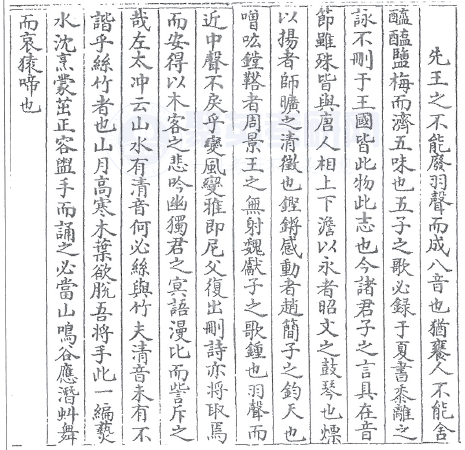 先王之不能廢羽聲而成八音也猶饔人不能舍
醯醢鹽梅而濟五味也五子之歌必錄于夏書黍離之
詠不刪于王國皆此物此志也今諸君子之言具在音
節雖殊皆與唐人相上下澹以永者昭文之鼓琴也慓
以揚者師曠之清徵也鏗鏘感動者趙簡子之鈞天也
噌吰鏜鞳者周景王之無射魏獻子之歌鍾也羽聲而
近中聲不戾乎變風變雅即尼父復出刪詩亦將取焉
而安得以木客之悲吟幽獨君之冥語漫比而訾斥之
哉左太冲云山水有清音何必絲與竹夫清音未有不
諧乎絲竹者也山月高寒木葉欲脫吾將手此一編爇
水沈烹蒙茁正容盥手而誦之必當山鳴谷應潛虯舞
而哀猿啼也